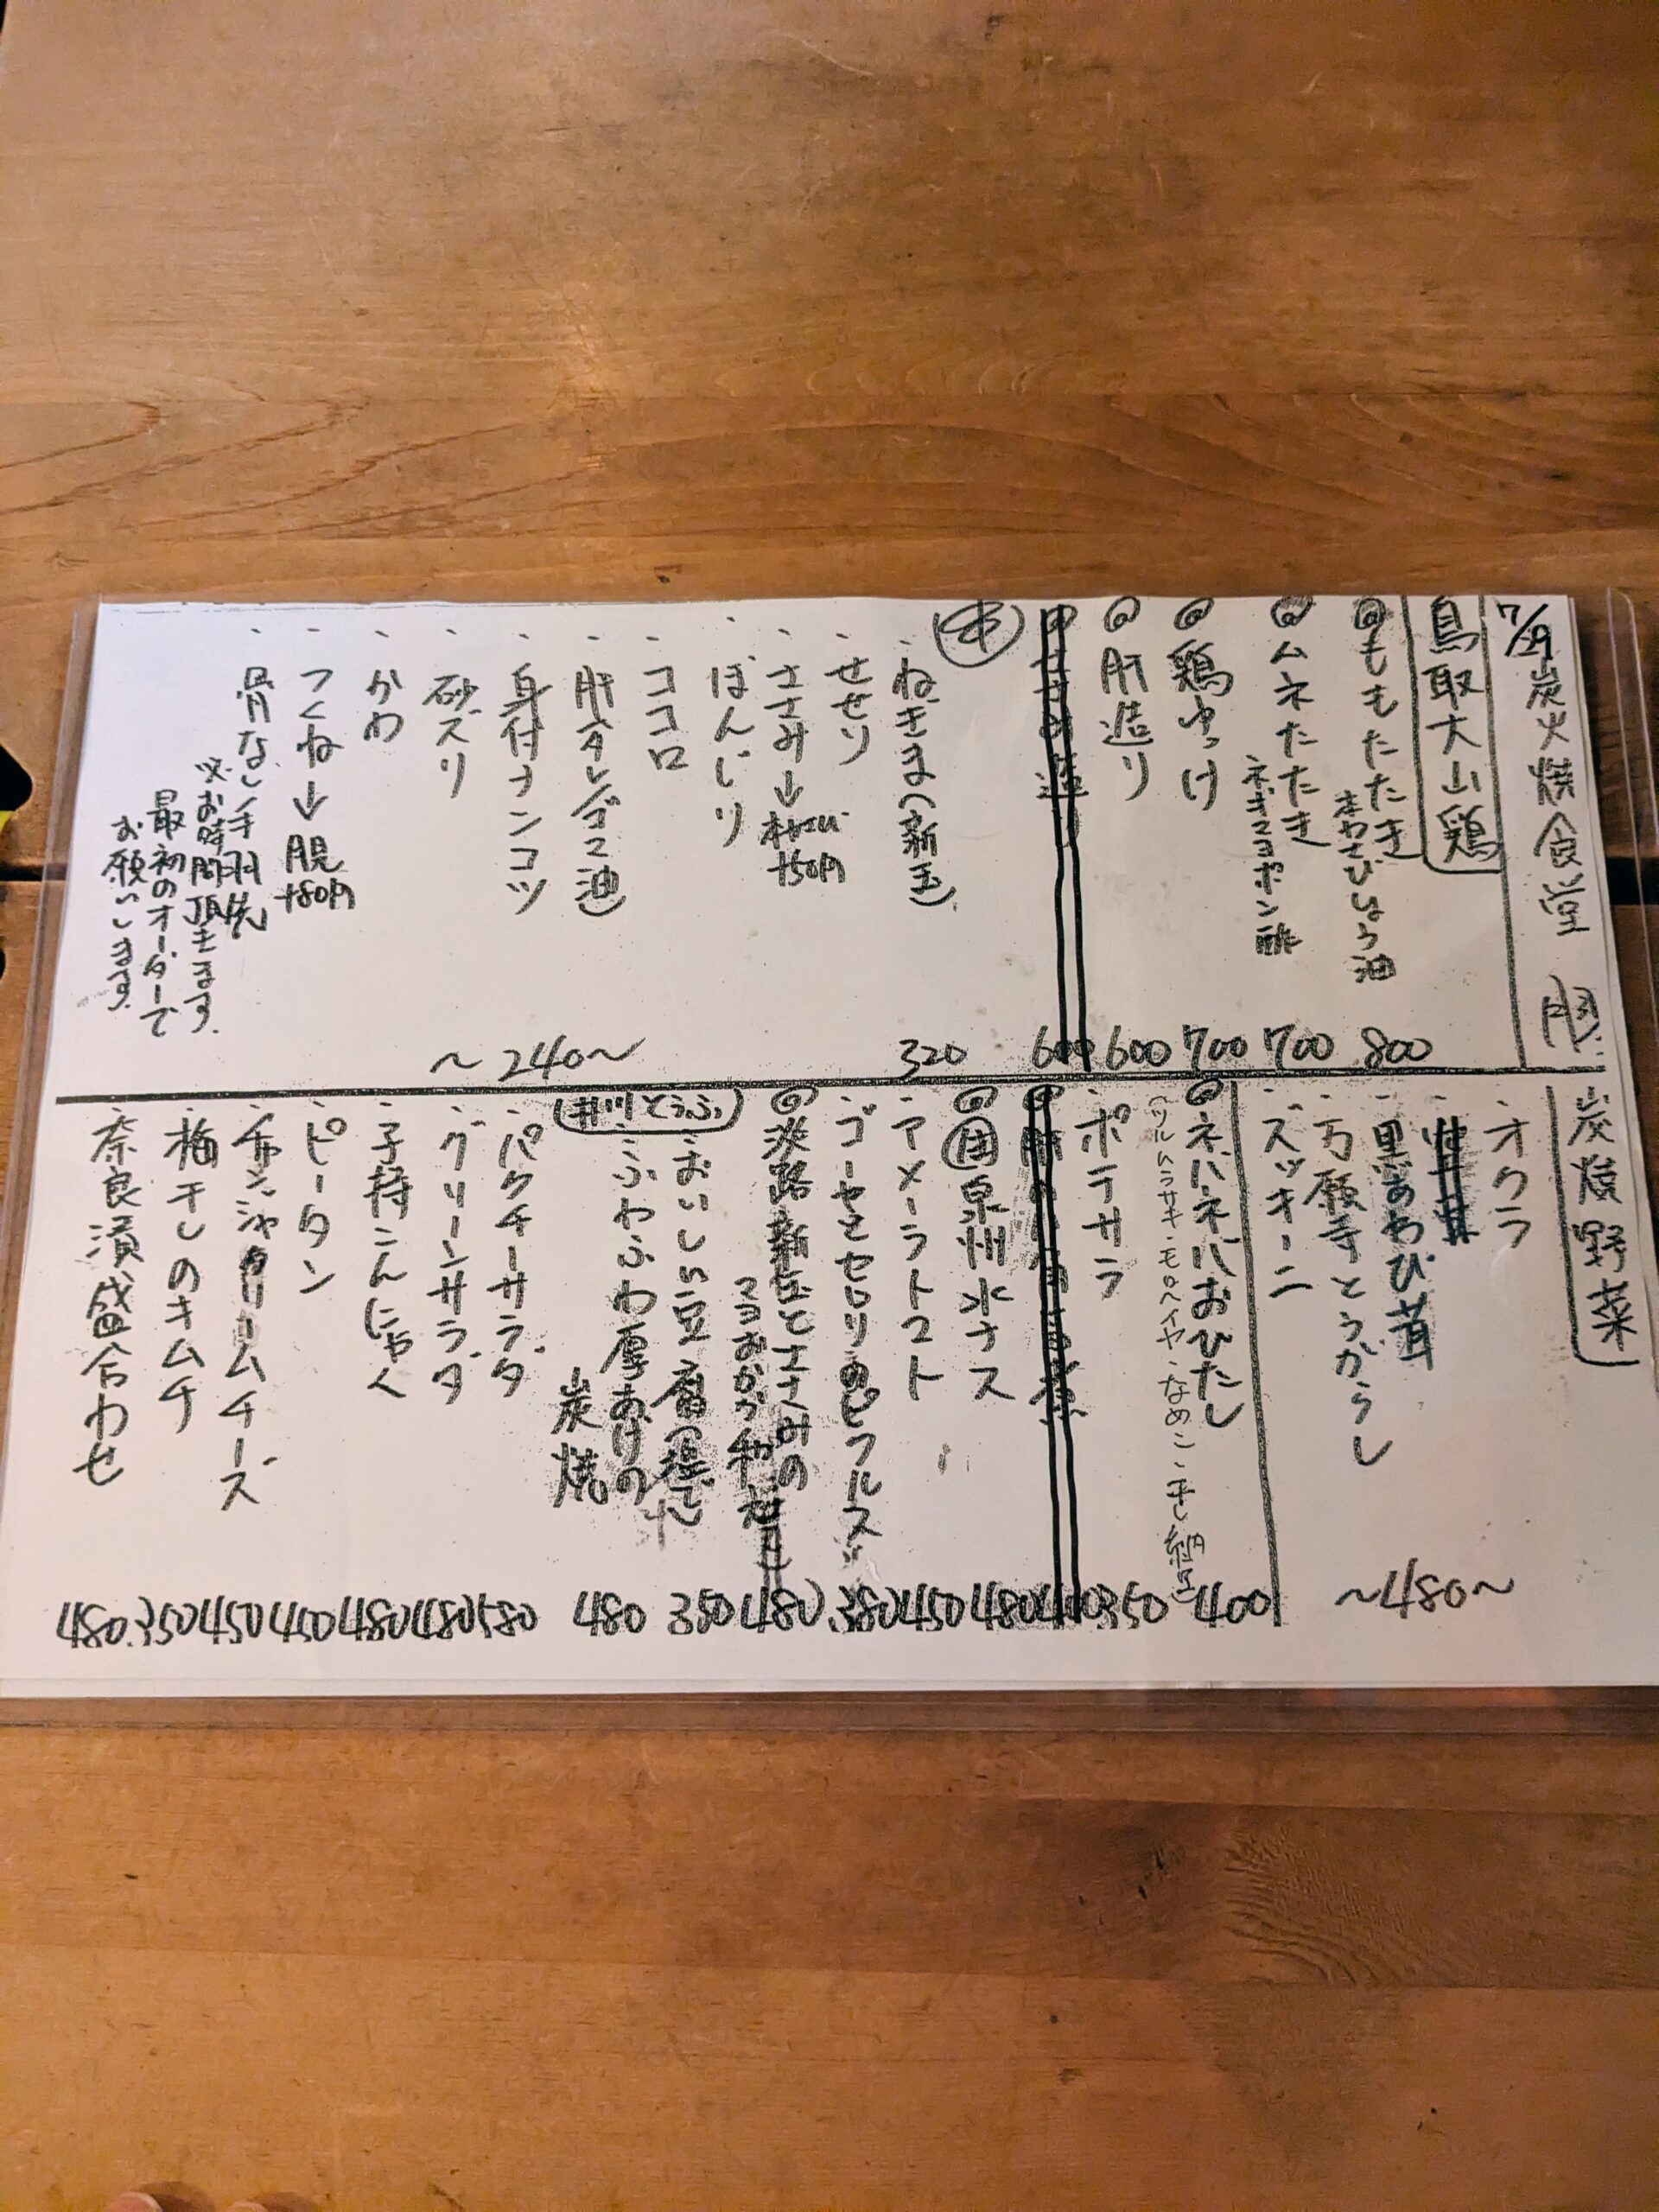 7/29 炭火焼食堂
鳥取大山鶏
◎ももたたき
まわさびしょう油
800
◎ムネたたき
ネギマヨポン酢
700
◎鶏ゆっけ
700
◎肝造り
600
600
串
・ねぎま(新玉)
320
・せせり
・ささみ→
+50円
・ぼんじり
・ココロ
・肝(タレ、ゴマ油)
・身付ナンコツ
・砂ズリ
・かわ
・つくね→月見
+80円
・骨なし手羽先
※お時間頂きます。
最初のオーダーで
お願いします。
〜240〜
炭焼野菜
・オクラ
・黒あわび茸
・万願寺とうがらし
・ズッキーニ
〜480〜
◎ネバネバおひたし
(ツルムラサキ・モロヘイヤ・なめこ・干し納豆
400
・ポテサラ
350
400
◎泉州水ナス
480
・アメーラトマト
450
・ゴーヤとセロリのピクルス
380
◎淡路新玉とささみの
マヨおかか和え
480
井川とうふ
・おいしい豆腐
350
・ふわふわ厚あげの
炭焼
480
・パクチーサラダ
580
・グリーンサラダ
480
・子持こんにゃく
480
・ピータン
450
・チャンジャクリームチーズ
450
・梅干しのキムチ
350
・奈良漬盛合わせ
480